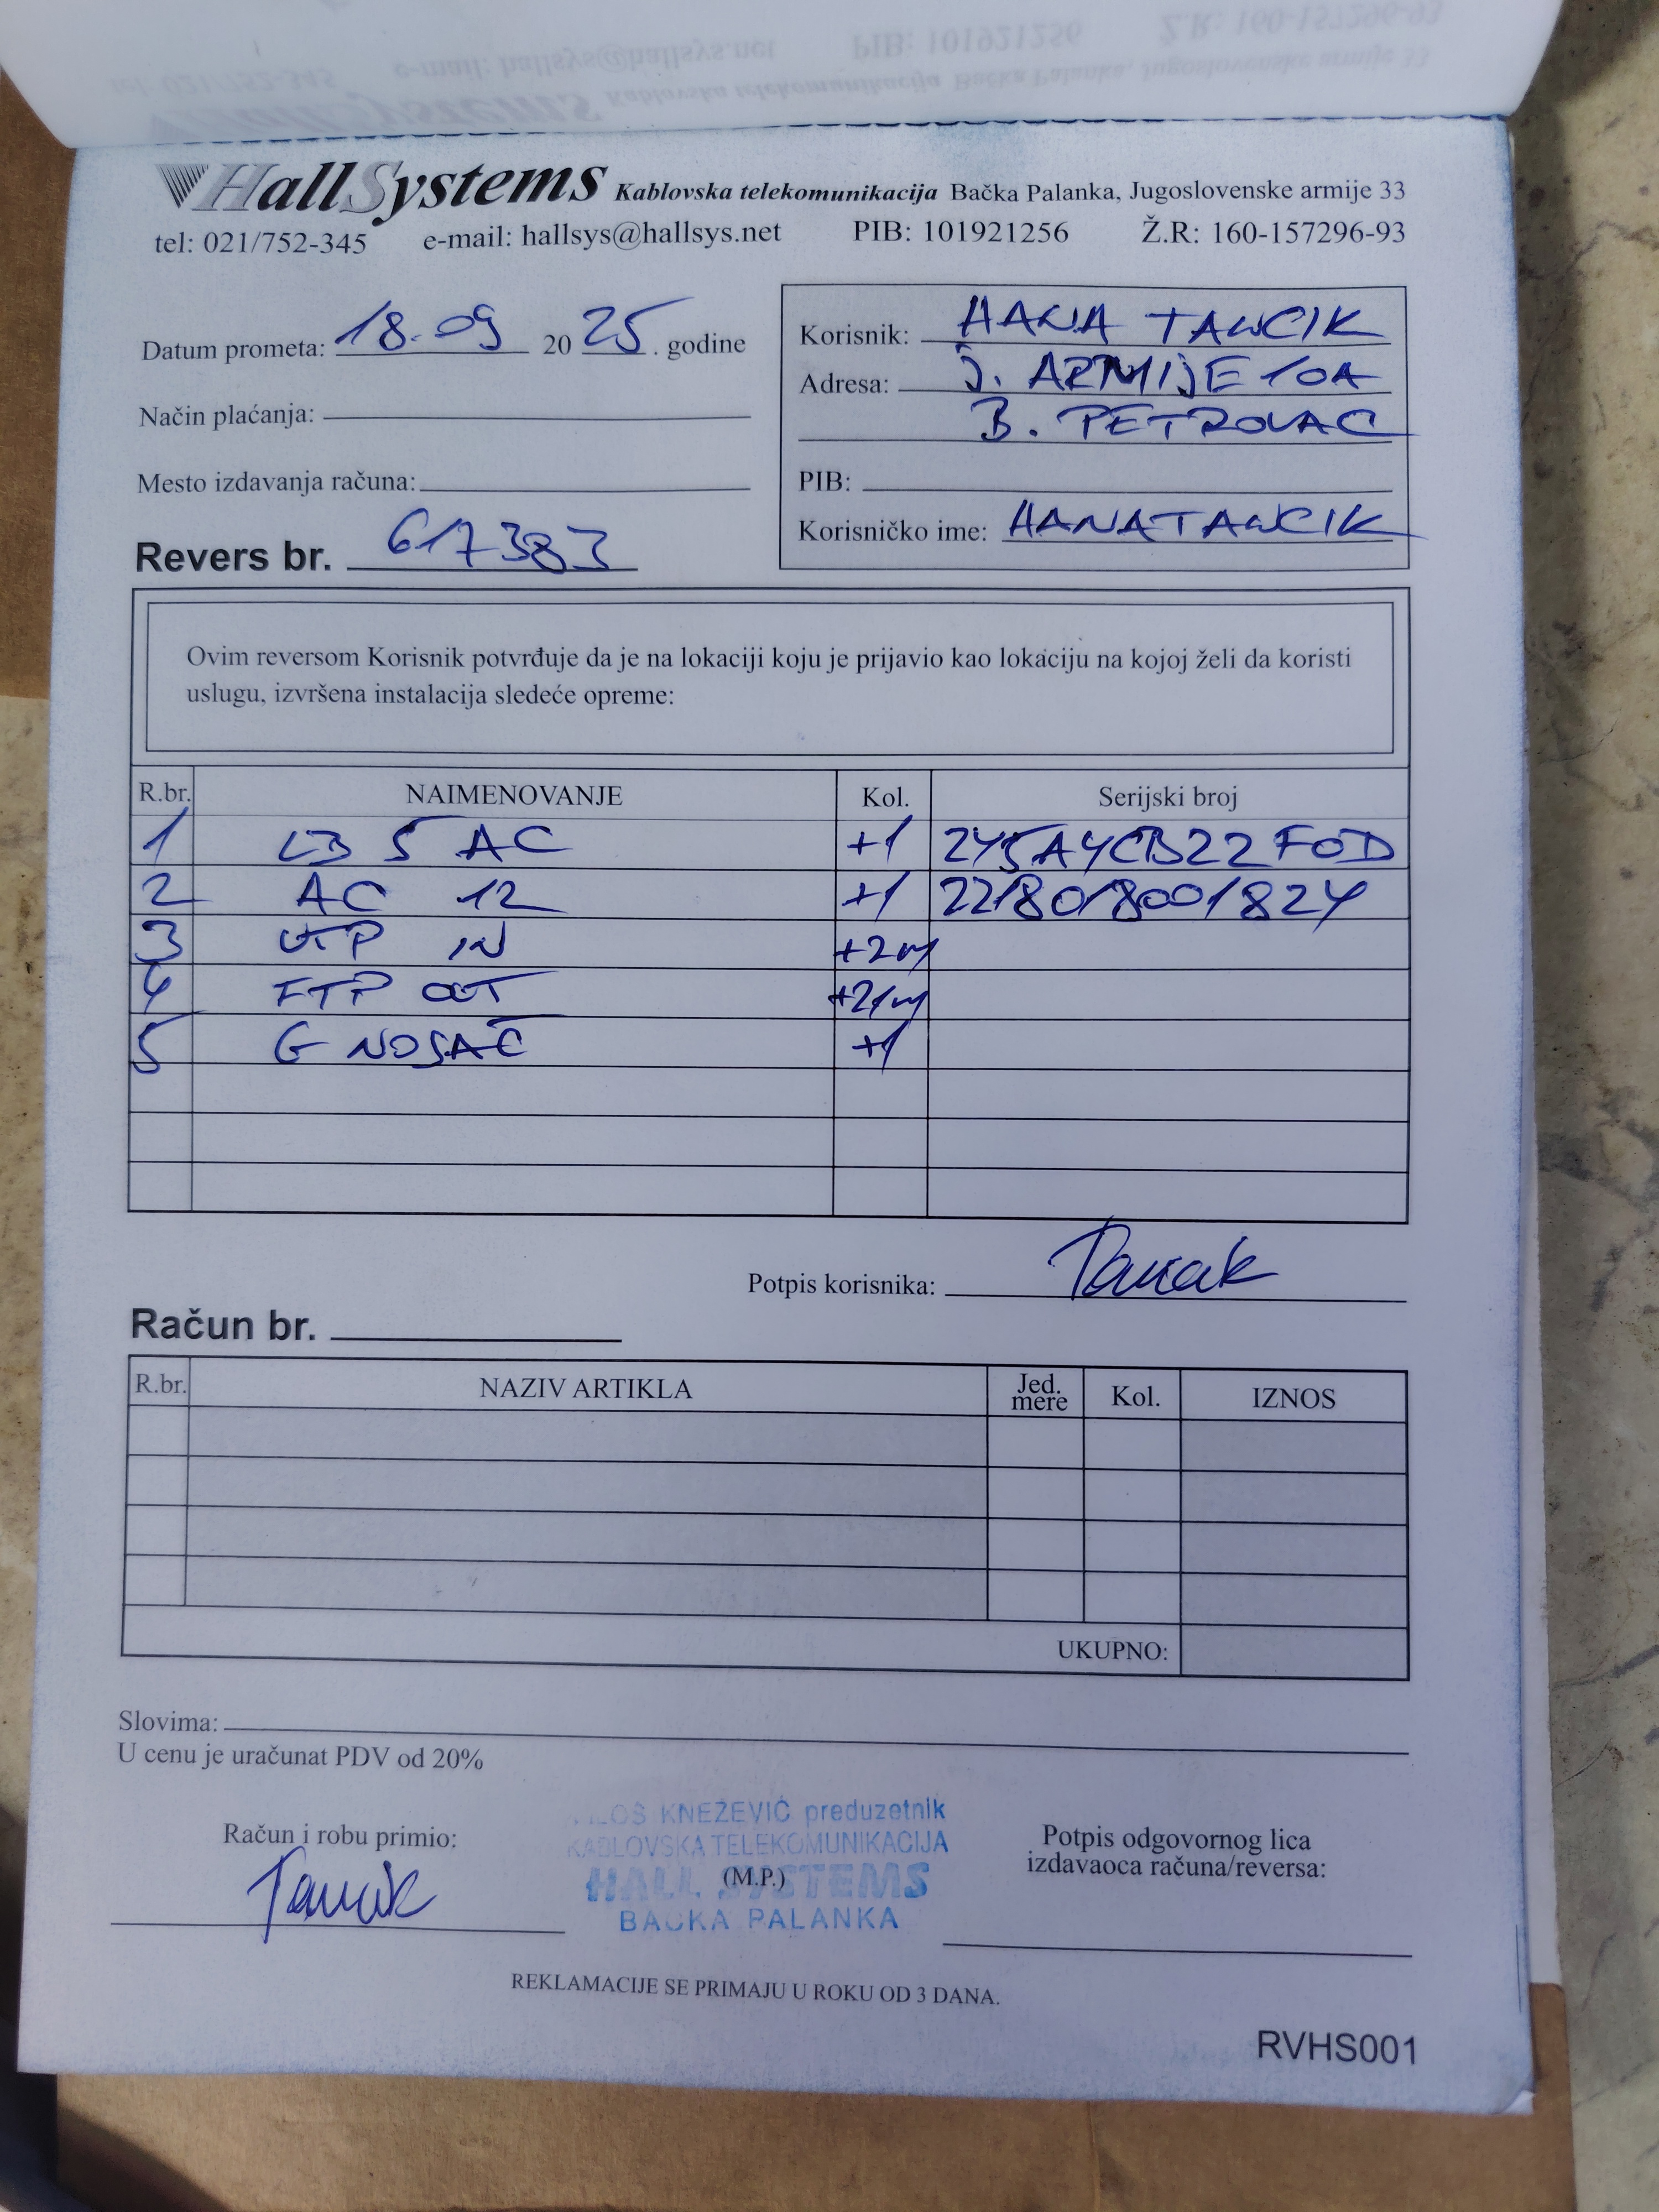 HallSystems Kablovska telekomunikacija Bačka Palanka, Jugoslovenske armije 33
tel: 021/752-345 e-mail: hallsys@hallsys.net PIB: 101921256 Ž.R: 160-157296-93
Datum prometa: 18.09 2025. godine
Način plaćanja:
Mesto izdavanja računa:
Revers br. 617383
Korisnik: HANA TANCIK
Adresa: J. ARMIJE 10A
B. PETROVAC
PIB:
Korisničko ime: HANATANCIK
Ovim reversom Korisnik potvrđuje da je na lokaciji koju je prijavio kao lokaciju na kojoj želi da koristi
uslugu, izvršena instalacija sledeće opreme:
R.br. NAIMENOVANJE Kol. Serijski broj
1 LB 5 AC +1 245A4CB22F0D
2 AC 12 +1 2218018001824
3 UTP IN +2m
4 FTP OUT +21m
5 G NOSAČ +1
Potpis korisnika:
Račun br.
R.br. NAZIV ARTIKLA Jed. mere Kol. IZNOS
UKUPNO:
Slovima:
U cenu je uračunat PDV od 20%
Račun i robu primio:
KNEŽEVIĆ preduzetnik
KABLOVSKA TELEKOMUNIKACIJA
HALL SYSTEMS
(M.P.)
BAČKA PALANKA
Potpis odgovornog lica
izdavaoca računa/reversa:
REKLAMACIJE SE PRIMAJU U ROKU OD 3 DANA.
RVHS001